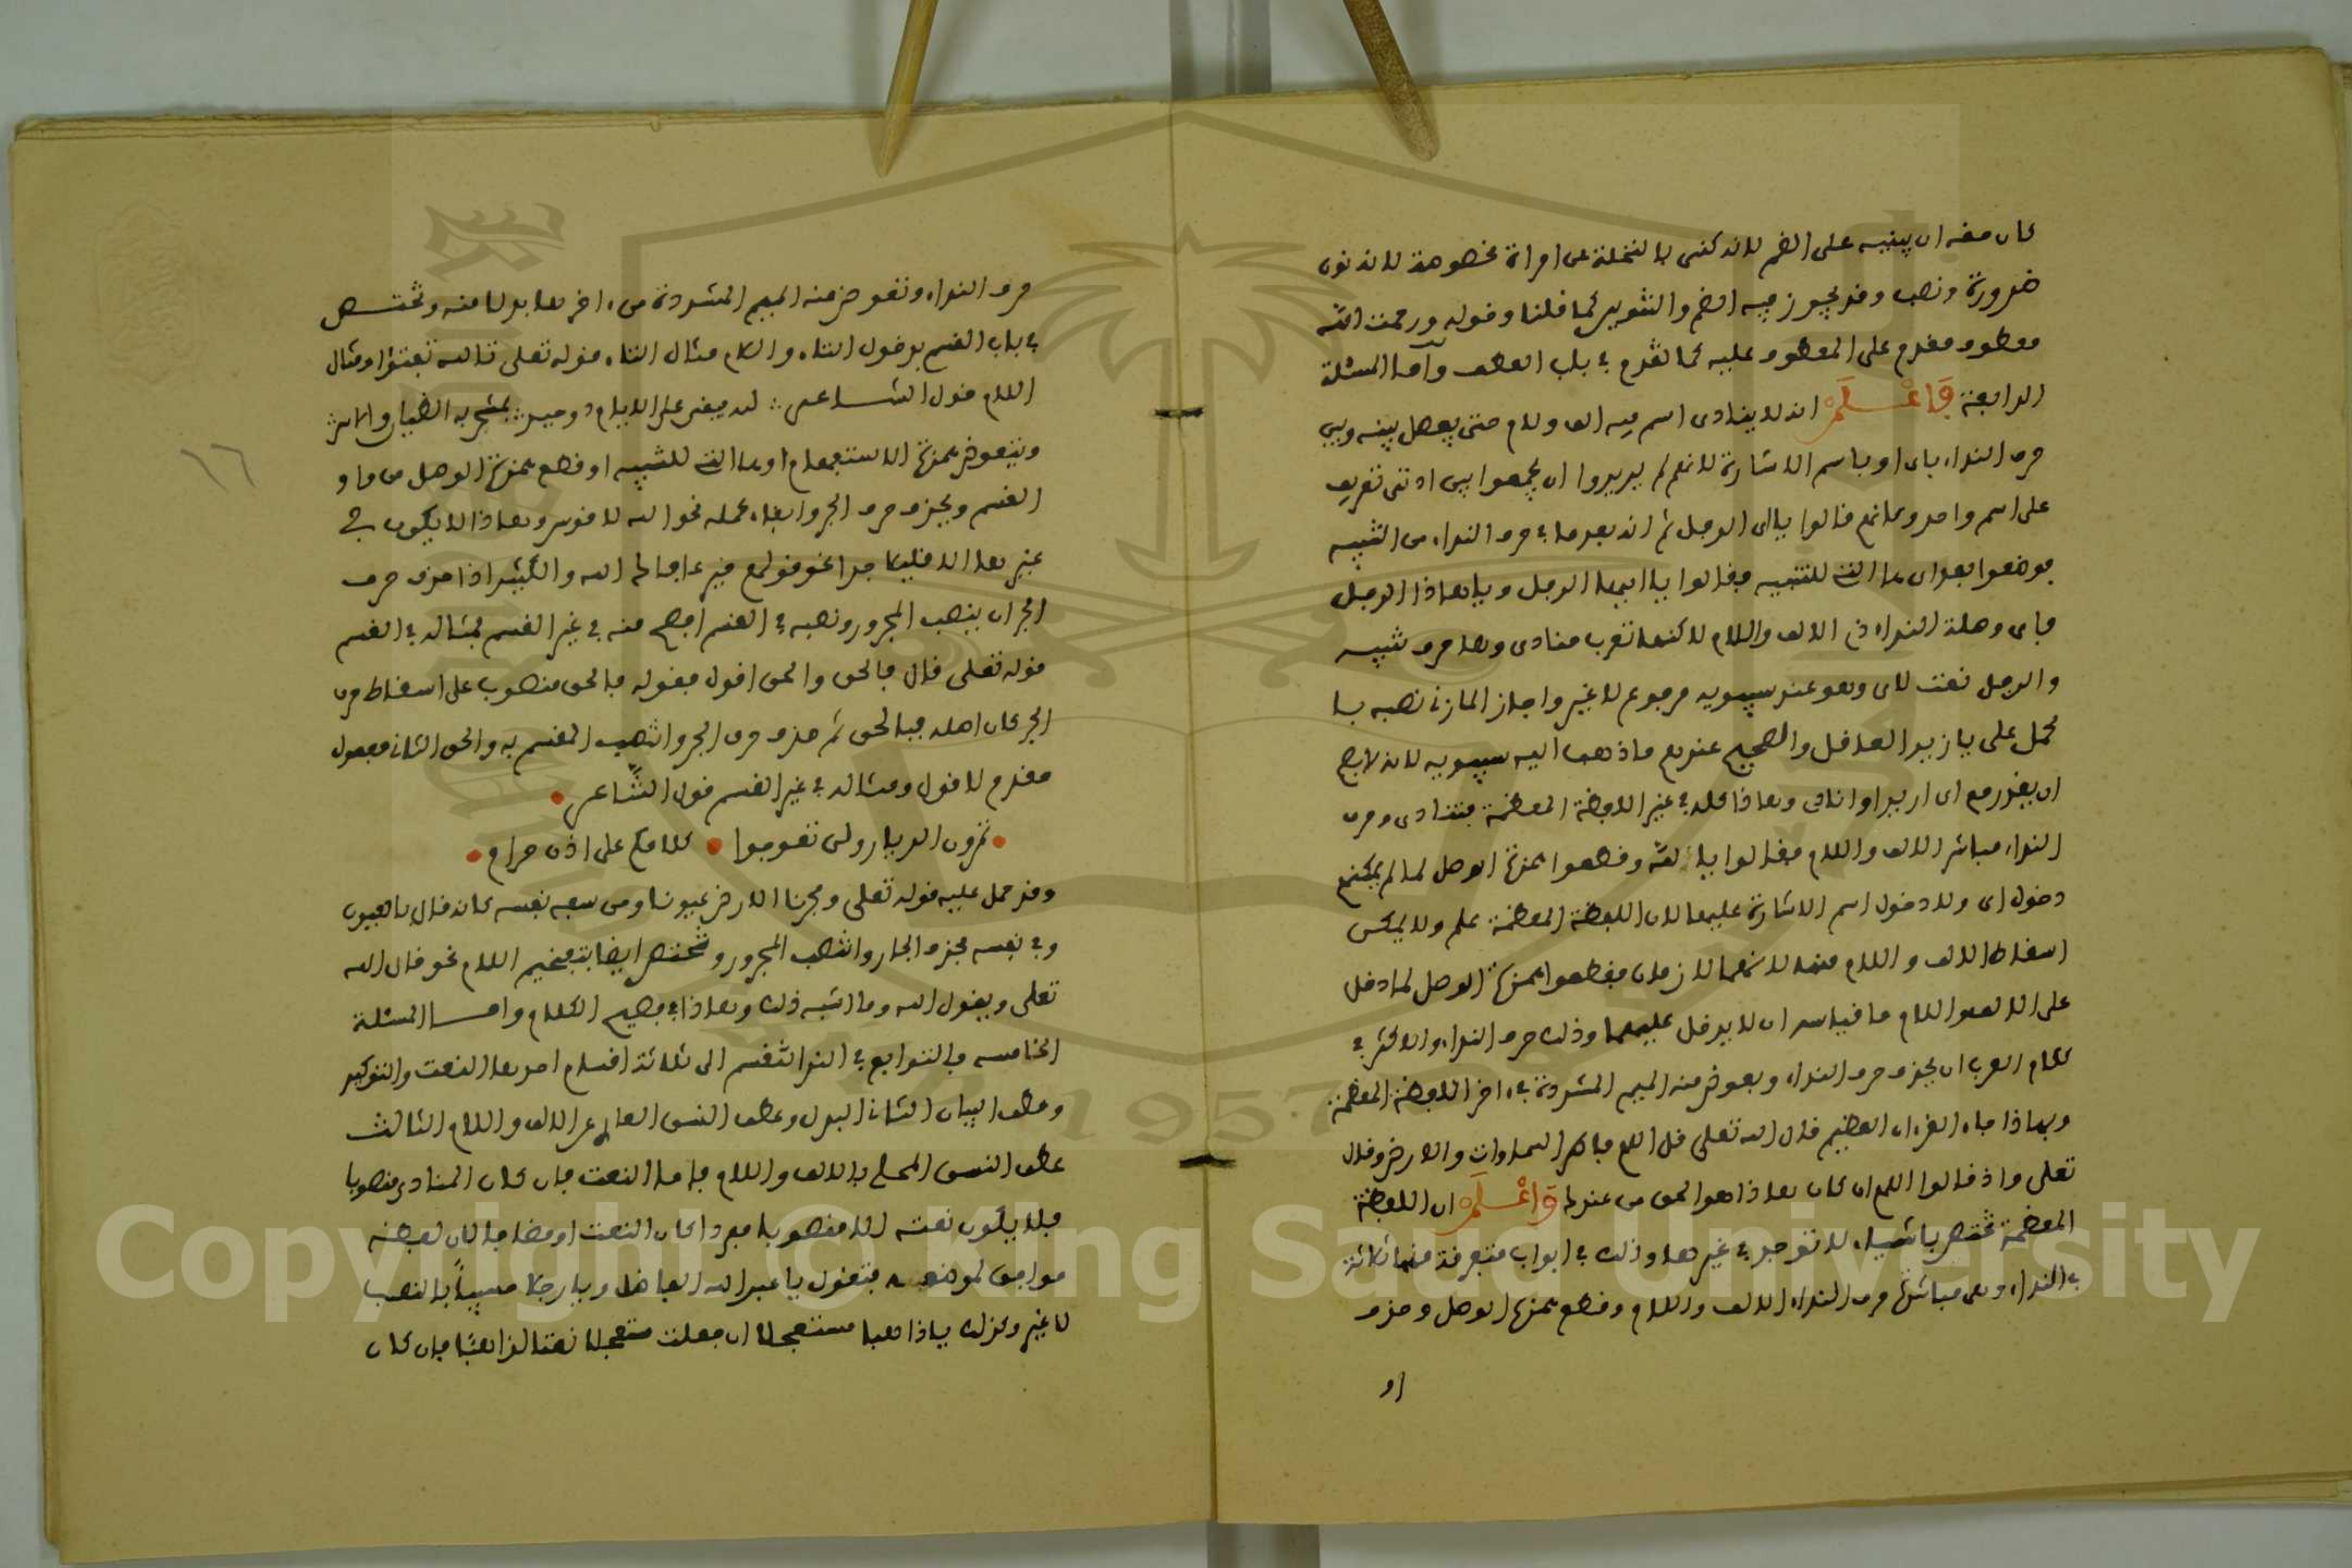 كان حقه ان يبنيه على الضم لانه كنى بالنخلة عن امراة مخصوصة لانه نون
ضرورة ونصب وقد يجوز فيه الضم والتنوين كما قلنا وقوله ورحمت الله
معطوف مقدم على المعطوف عليه كما تقدم في باب العطف واما المسئلة
الرابعة فَاعْلَمْ انه لا ينادى اسم فيه الف ولام حتى يفصل بينه وبين
حرف النداء باى او باسم الاشارة لانهم لم يريدوا ان يجمعوا بين اداتى تعريف
على اسم واحد وكانهم قالوا يا اى الرجل ثم انه بعد ما في حرف النداء من التنبيه
فوضعوا بعد اى ها التي للتنبيه فقالوا يا ايها الرجل ويا هاذا الرجل
فاى وصلة لنداء ذى الالف واللام لاكنها تعرب منادى وها حرف تنبيه
والرجل نعت لاى وهو عند سيبويه مرفوع لا غير واجاز المازنى نصبه بـا
لحمل على يا زيد العاقل والصحيح عندهم ماذهب اليه سيبويه لانه لا يصح
ان يقدر مع اى اريد او انادى وهاذا كله في غير اللفظة المعظمة فتنادى وحرف
النداء مباشر الالف واللام فقالوا يا الله وقطعوا همزة الوصل لما لم يمكنهم
دخول اى ولا دخول اسم الاشارة عليها لان اللفظة المعظمة علم ولا يمكن
اسقاط الالف واللام منها لانهما لازمان فقطعوا همزة الوصل لما دخل
على الالف واللام ما قياسه ان لا يدخل عليهما وذلك حرف النداء والاكثر في
كلام العرب ان يحذف حرف النداء ويعوض منه الميم المشددة في ءاخر اللفظة المعظمة
وبهاذا جاء القرءان العظيم قال الله تعلى قل اللهم فاطر السماوات والارض وقال
تعلى واذ قالوا اللهم ان كان هاذا هو الحق من عندك وَاعْلَمْ ان اللفظة
المعظمة تختص باشياء لا توجد في غيرها وذلك في ابواب متفرقة منها ثلاثة
في النداء وهى مباشرة حرف النداء الالف واللام وقطع همزة الوصل وحذف
حرف النداء وتعوض منه الميم المشددة من ءاخرها بدلا منه وتختــص
في باب القسم بدخول التاء واللام مثال التاء قوله تعلى تالله تفتؤا ومثال
اللام قول الشــاعر لله يبقى على الايام ذو حيد بمشمخر به الظيان والاس
وبتعوض همزة الاستفهام او ها التي للتنبيه او قطع همزة الوصل من واو
القسم وبحذف حرف الجر وابقاء عمله نحو الله لافومن وهاذا لا يكون في
غيرها الا قليلا جدا نحو قولهم خير عافاك الله والكثير اذا حذف حرف
الجر ان ينصب المجرور ونصبه في القسم افصح منه في غير القسم فمثاله في القسم
قوله تعلى قال فالحق والحق اقول فقوله فالحق منصوب على اسقاط حرف
الجر كان اصله فبالحق ثم حذف حرف الجر وانتصب المقسم به والحق الثانى مفعول
مقدم لاقول ومثاله في غير القسم قول الشَّاعر
تمرون الديار ولم تعوجوا كلامكم على اذن حرام
وقد حمل عليه قوله تعلى وفجرنا الارض عيونا ومن سفه نفسه كانه قال بالعيون
وفي نفسه فحذف الجار وانتصب المجرور وتختص ايضا بتفخيم اللام نحو قال الله
تعلى ويقول الله وما اشبه ذلك وهاذا في فصيح الكلام وامــا المسئلة
الخامسة فالتوابع في النداء تنقسم الى ثلاثة اقسام احدها النعت والتوكيد
وعطف البيان الثانى البدل وعطف النسق العارى عن الالف واللام الثالث
عطف النسق المحلى بالالف واللام فاما النعت فان كان المنادى منصوبا
فلا يكون نعته الا منصوبا مفردا كان النعت او مضافا لان لفظه
موافق لموضعه فتقول يا عبد الله العاقل ويا رجلا مسيباً بالنصب
لا غير وكذلك يا ذاهبا مستعجلا ان جعلت مستعجلا نعتا لذاهبا فان كان
او
١٦
Copyright © King Saud University
1957